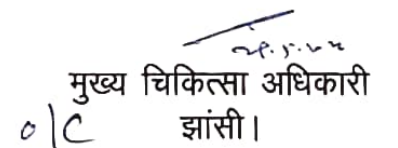 मुख्य चिकित्सा अधिकारी
o/c झांसी।